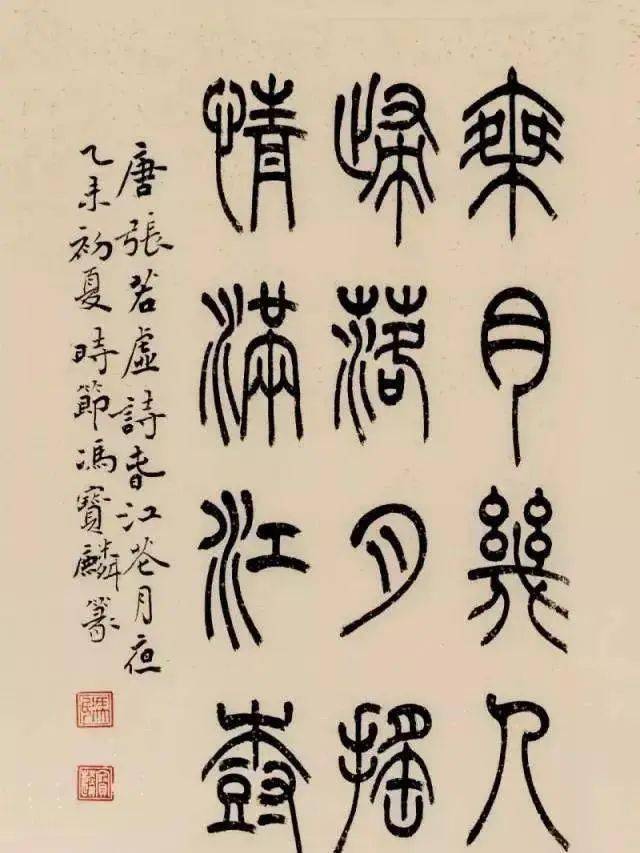 乘月幾人
歸落月搖
情滿江樹
唐張若虛詩春江花月夜
乙未初夏時節馮寶麟篆